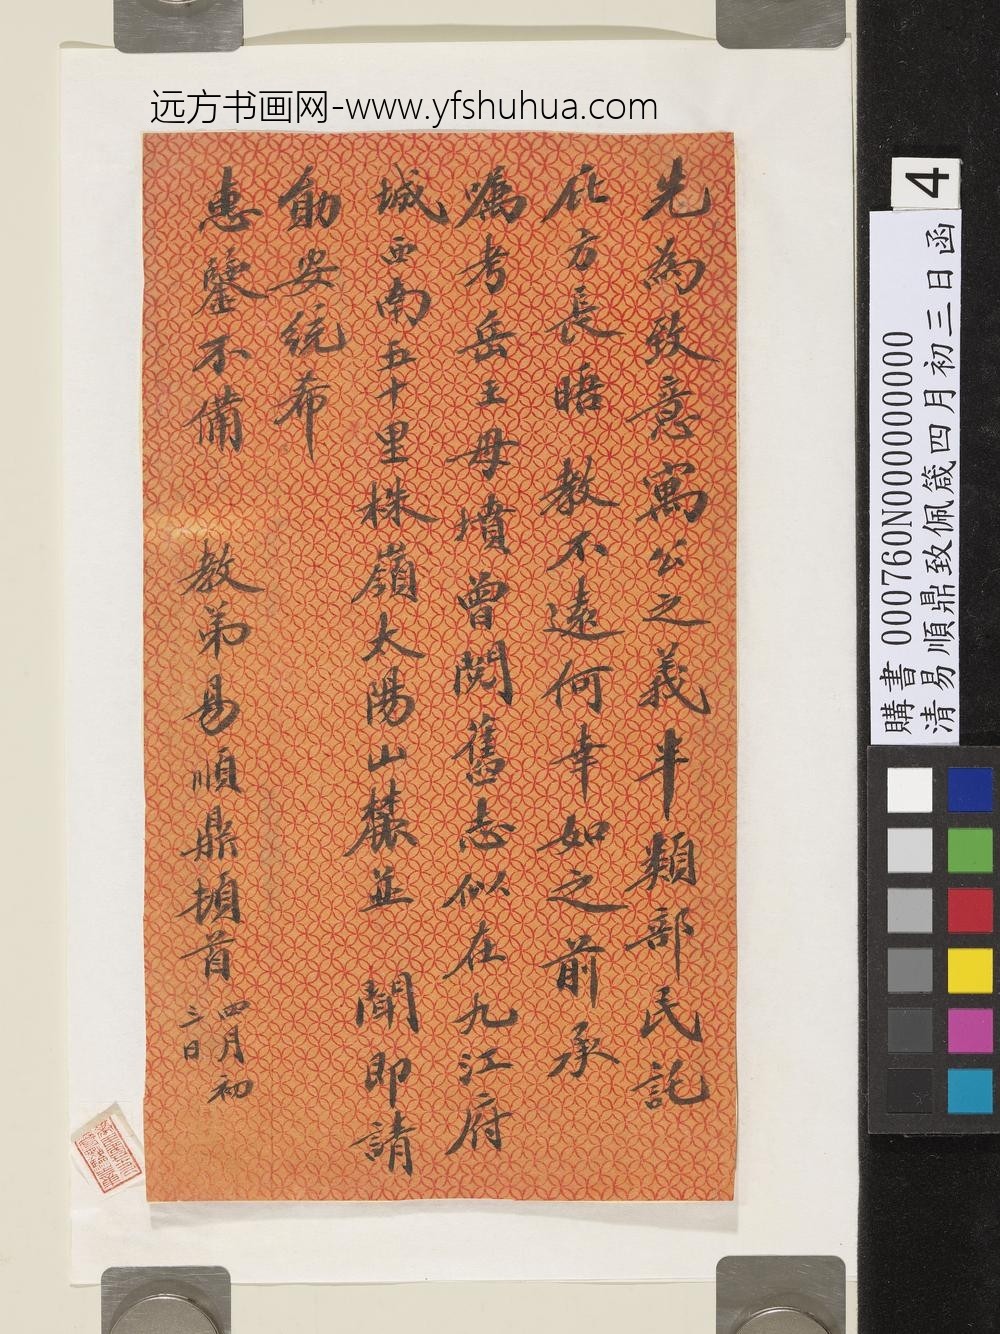 远方书画网-www.yfshuhua.com
先為致意寓公之義半類部民託
庇方長晤教不遠何幸如之前承
嘱考岳王母墳曾閱舊志似在九江府
城西南五十里株嶺大陽山麓並 聞即請
勛安統希
惠鑒不備 教弟易順鼎頓首 四月初
三日
4
購書 000760N000000000
清易順鼎致佩箴四月初三日函